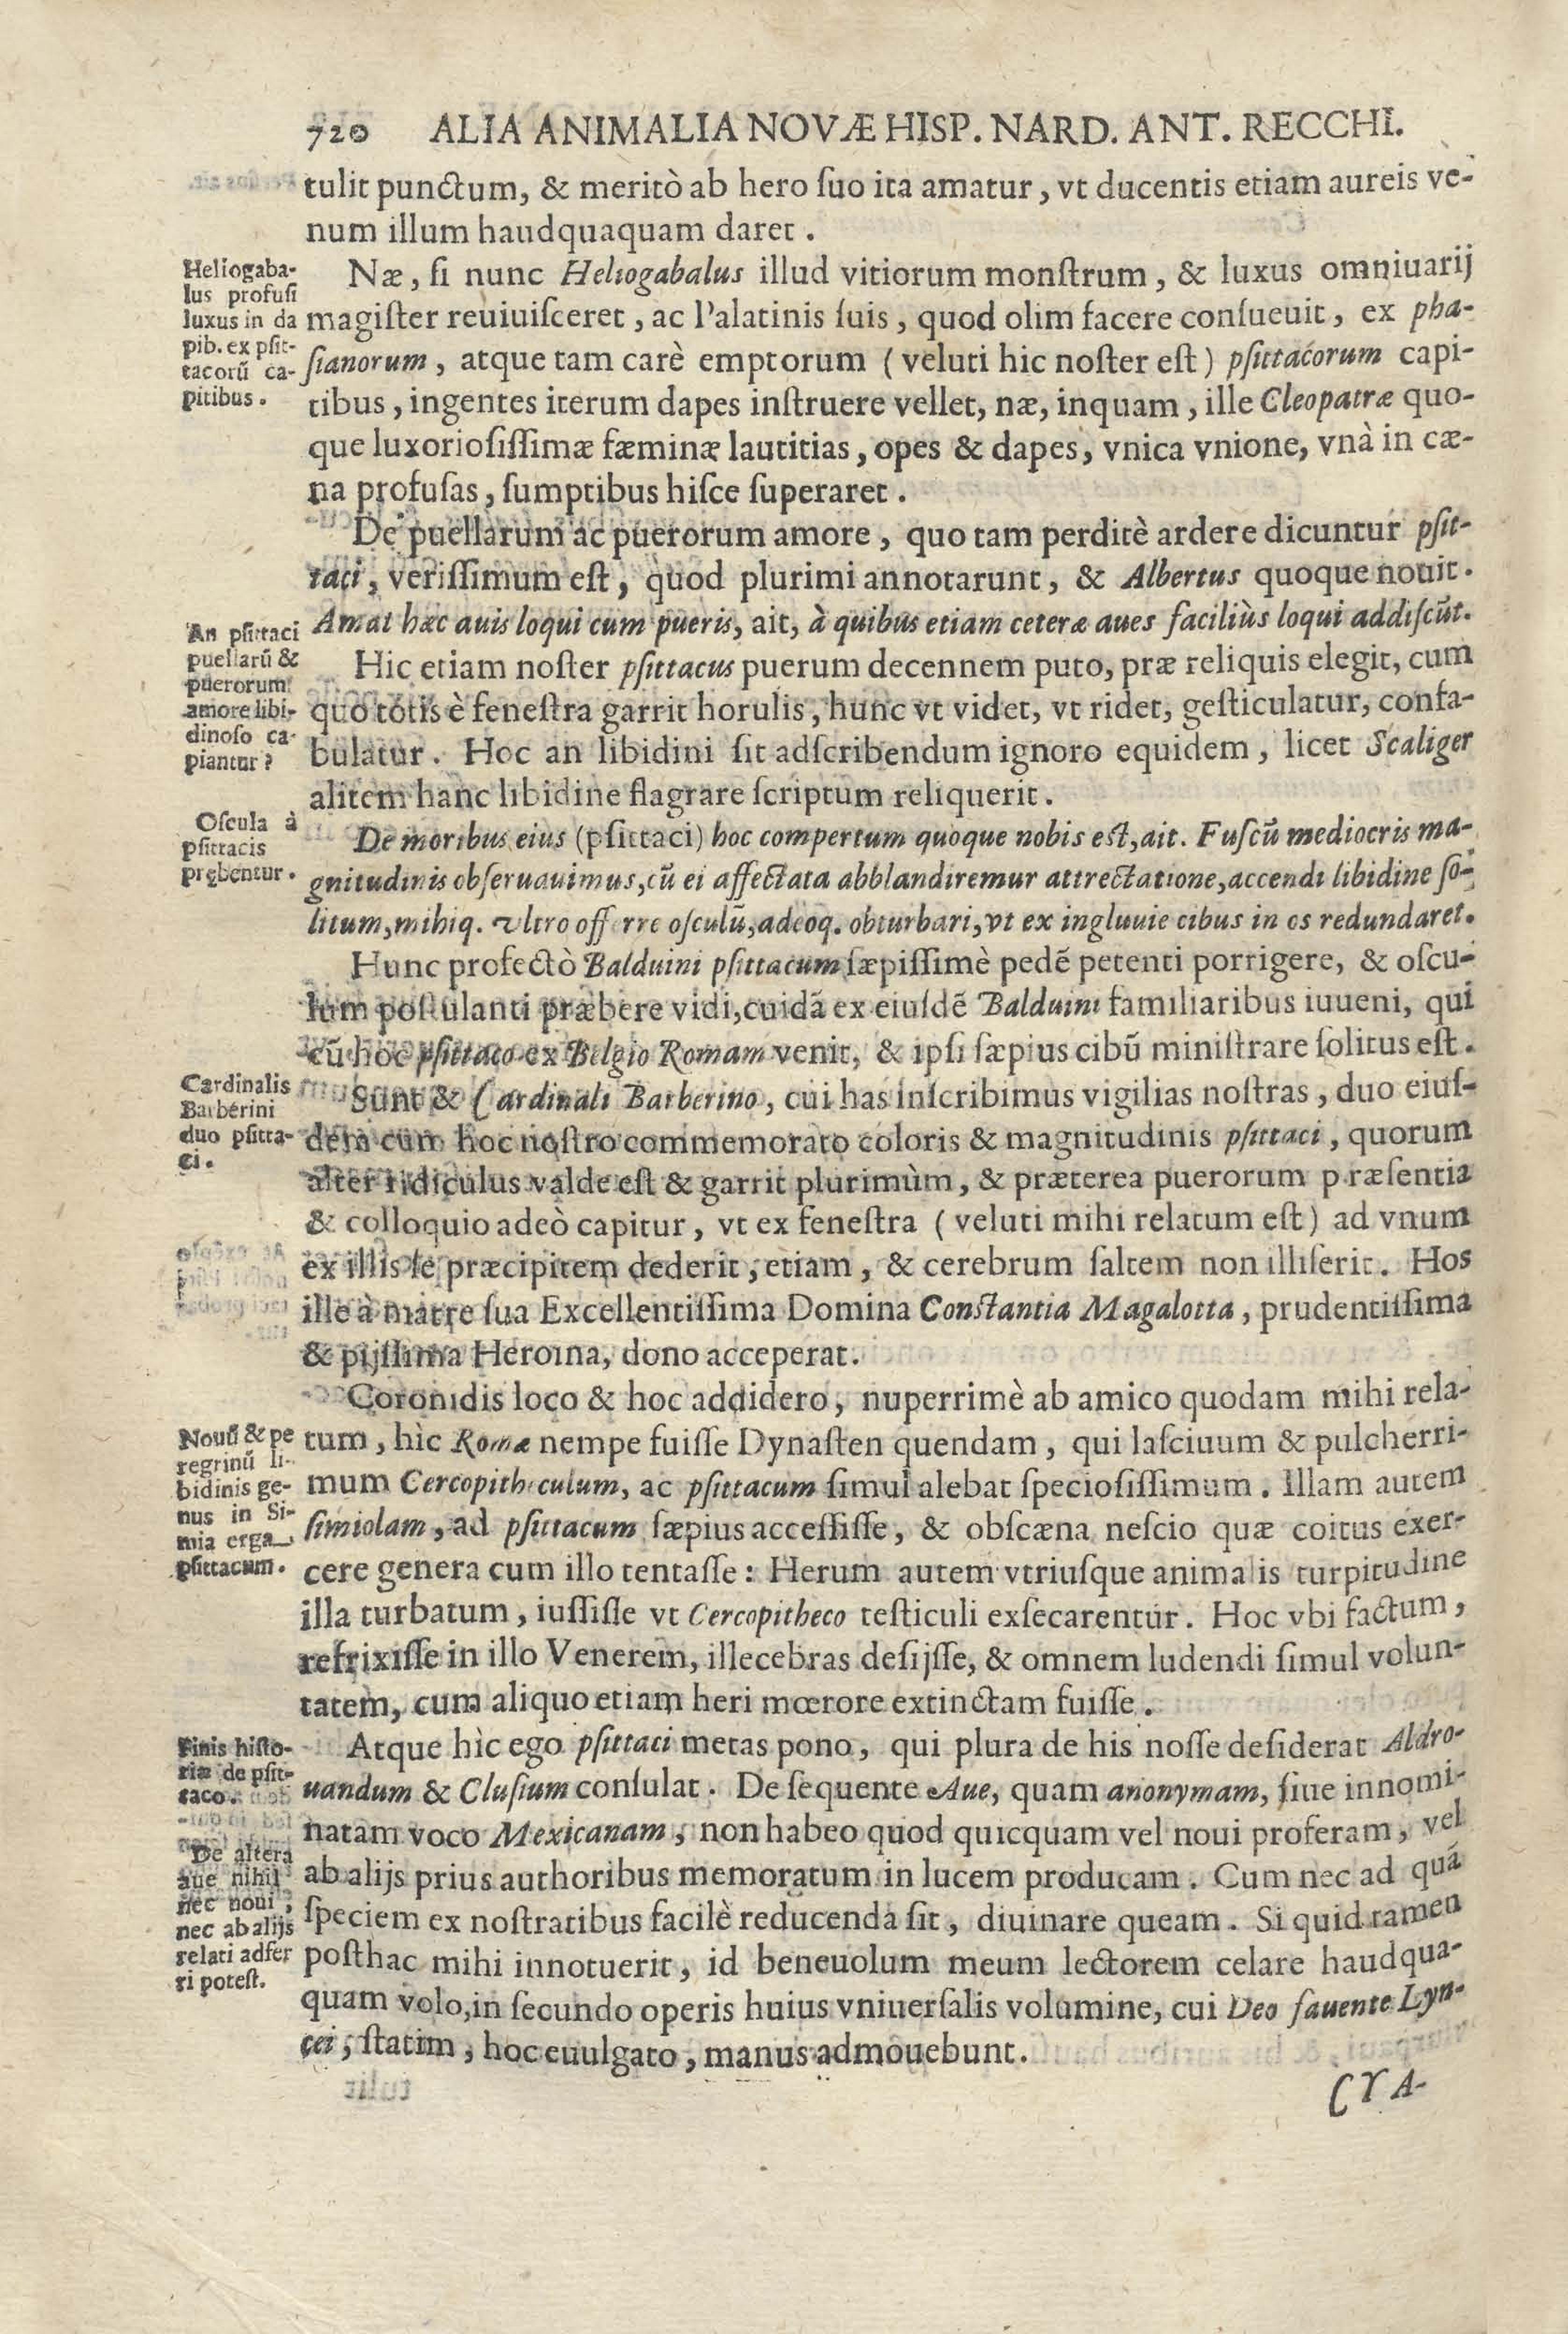 720 ALIA ANIMALIA NOVÆ HISP. NARD. ANT. RECCHI.
tulit punctum, & meritò ab hero ſuo ita amatur, vt ducentis etiam aureis ve-
num illum haudquaquam daret.
Heliogaba-
lus profuſi
luxus in da
pib. ex pſit-
tacorũ ca-
pitibus.
Næ, ſi nunc Heliogabalus illud vitiorum monſtrum, & luxus omniuarij
magiſter reuiuiſceret, ac Palatinis ſuis, quod olim facere conſueuit, ex pha-
ſianorum, atque tam carè emptorum (veluti hic noſter eſt) pſittacorum capi-
tibus, ingentes iterum dapes inſtruere vellet, næ, inquam, ille Cleopatræ quo-
que luxorioſiſſimæ fæminæ lautitias, opes & dapes, vnica vnione, vnà in cæ-
na profuſas, ſumptibus hiſce ſuperaret.
De puellarum ac puerorum amore, quo tam perditè ardere dicuntur pſit-
taci, veriſſimum eſt, quod plurimi annotarunt, & Albertus quoque nouit.
Amat hæc auis loqui cum pueris, ait, à quibus etiam ceteræ aues faciliùs loqui addiſcũt.
An pſittaci
puellarũ &
puerorum
amore libi-
dinoſo ca-
piantur?
Hic etiam noſter pſittacus puerum decennem puto, præ reliquis elegit, cum
quo totis è feneſtra garrit horulis, hunc vt videt, vt ridet, geſticulatur, confa-
bulatur. Hoc an libidini ſit adſcribendum ignoro equidem, licet Scaliger
alitem hanc libidine flagrare ſcriptum reliquerit.
Oſcula à
pſittacis
prębentur.
De moribus eius (pſittaci) hoc compertum quoque nobis est, ait. Fuſcũ mediocris ma-
gnitudinis obſeruauimus, cũ ei affectata abblandiremur attrectatione, accendi libidine ſo-
litum, mihiq. vltro offerre oſculũ, adeoq. obturbari, vt ex ingluuie cibus in os redundaret.
Hunc profectò Balduini pſittacum ſæpiſſimè pedẽ petenti porrigere, & oſcu-
lum poſtulanti præbere vidi, cuidã ex eiuſdẽ Balduini familiaribus iuueni, qui
cũ hoc pſittaco ex Belgio Romam venit, & ipſi ſæpius cibũ miniſtrare ſolitus eſt.
Cardinalis
Barberini
duo pſitta-
ci.
Sunt & Cardinali Barberino, cui has inſcribimus vigilias noſtras, duo eiuſ-
dem cum hoc noſtro commemorato coloris & magnitudinis pſittaci, quorum
alter ridiculus valde eſt & garrit plurimùm, & præterea puerorum præſentia
& colloquio adeò capitur, vt ex feneſtra (veluti mihi relatum eſt) ad vnum
ex illis ſe præcipitem dederit, etiam, & cerebrum ſaltem non illiſerit. Hos
ille à matre ſua Excellentiſſima Domina Constantia Magalotta, prudentiſſima
& pijſſima Heroina, dono acceperat.
Coronidis loco & hoc addidero, nuperrimè ab amico quodam mihi rela-
Nouũ & pe
regrinũ li-
bidinis ge-
nus in Si-
mia erga
pſittacum.
tum, hìc Romæ nempe fuiſſe Dynaſten quendam, qui laſciuum & pulcherri-
mum Cercopitheculum, ac pſittacum ſimul alebat ſpecioſiſſimum. Illam autem
ſimiolam, ad pſittacum ſæpius acceſſiſſe, & obſcæna neſcio quæ coitus exer-
cere genera cum illo tentaſſe: Herum autem vtriuſque animalis turpitudine
illa turbatum, iuſſiſſe vt Cercopitheco teſticuli exſecarentur. Hoc vbi factum,
refrixiſſe in illo Venerem, illecebras deſijſſe, & omnem ludendi ſimul volun-
tatem, cum aliquo etiam heri mœrore extinctam fuiſſe.
Finis hiſto-
riæ de pſit-
taco.
Atque hìc ego pſittaci metas pono, qui plura de his noſſe deſiderat Aldro-
uandum & Cluſium conſulat. De ſequente Aue, quam anonymam, ſiue innomi-
natam voco Mexicanam, non habeo quod quicquam vel noui proferam, vel
De altera
aue nihil
nec noui,
nec ab alijs
relati adfer
ri poteſt.
ab alijs prius authoribus memoratum in lucem producam. Cum nec ad quã
ſpeciem ex noſtratibus facilè reducenda ſit, diuinare queam. Si quid tamen
poſthac mihi innotuerit, id beneuolum meum lectorem celare haudqua-
quam volo, in ſecundo operis huius vniuerſalis volumine, cui Deo fauente Lyn-
cei, ſtatim, hoc euulgato, manus admouebunt.
CYA-